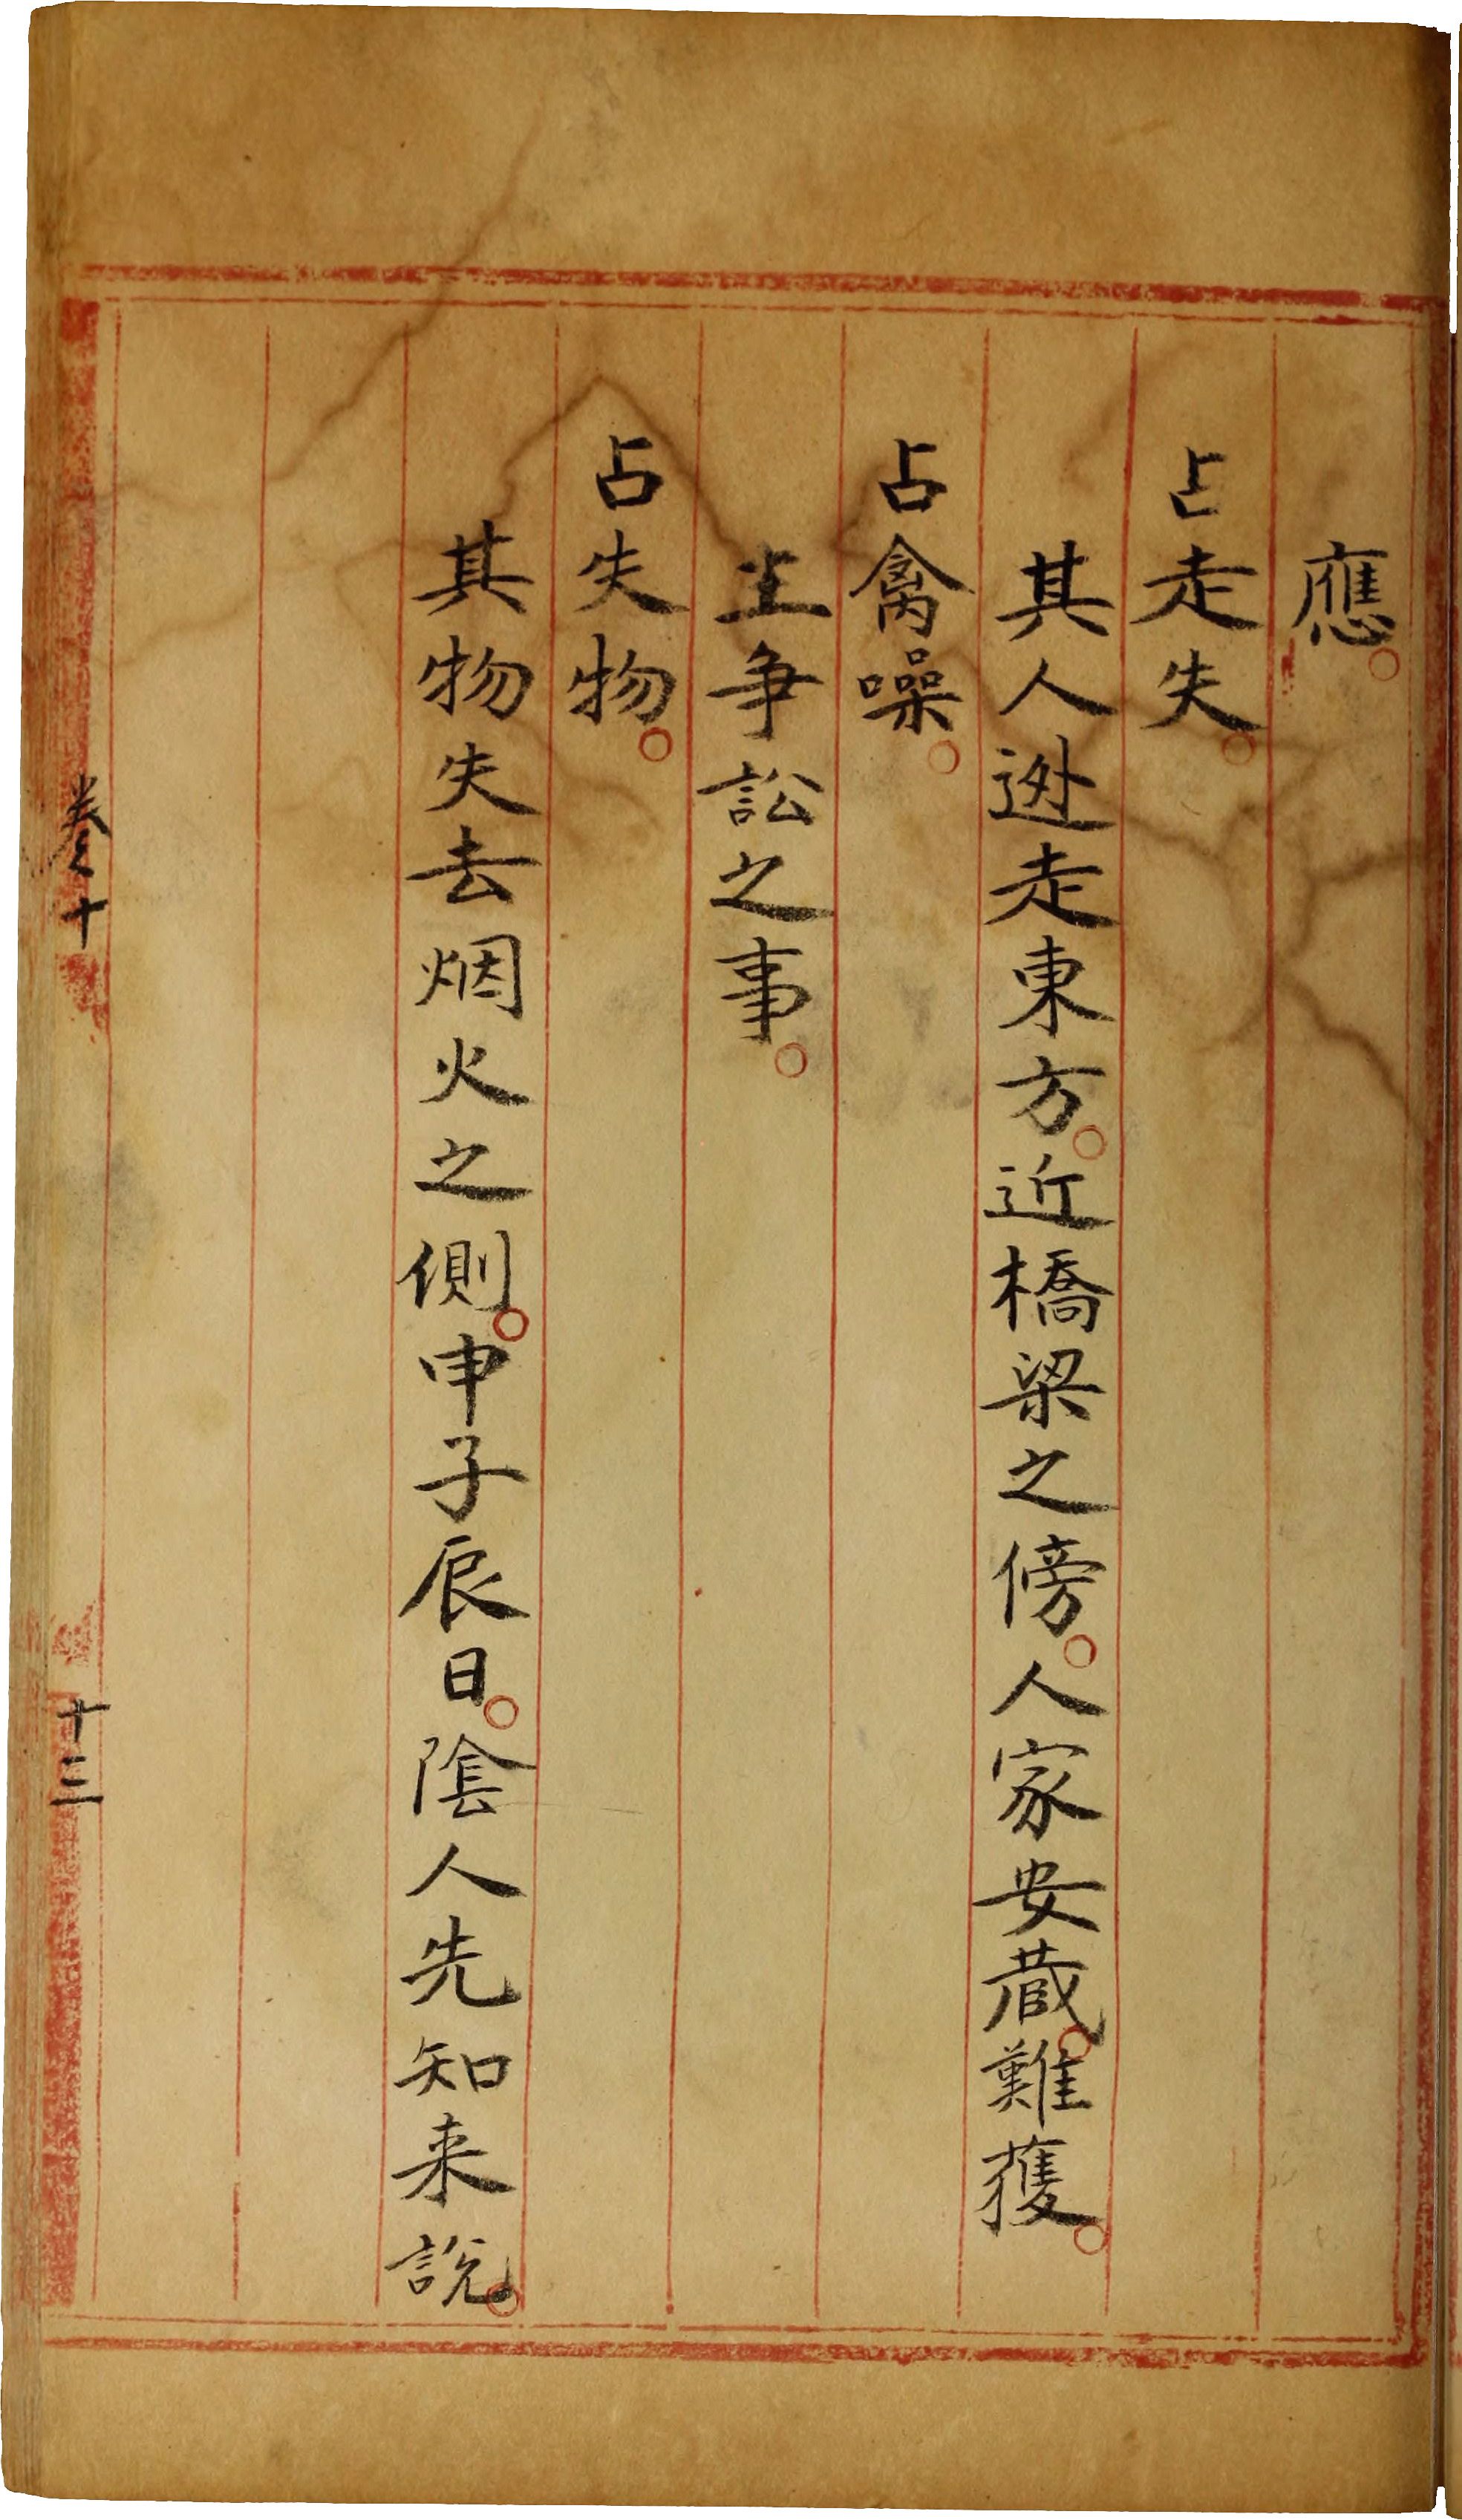 應。
占走失。
其人逃走東方。近橋梁之傍。人家安藏。難獲。
占禽噪。
主爭訟之事。
占失物。
其物失去烟火之側。申子辰日。陰人先知来說。
卷之十
十三